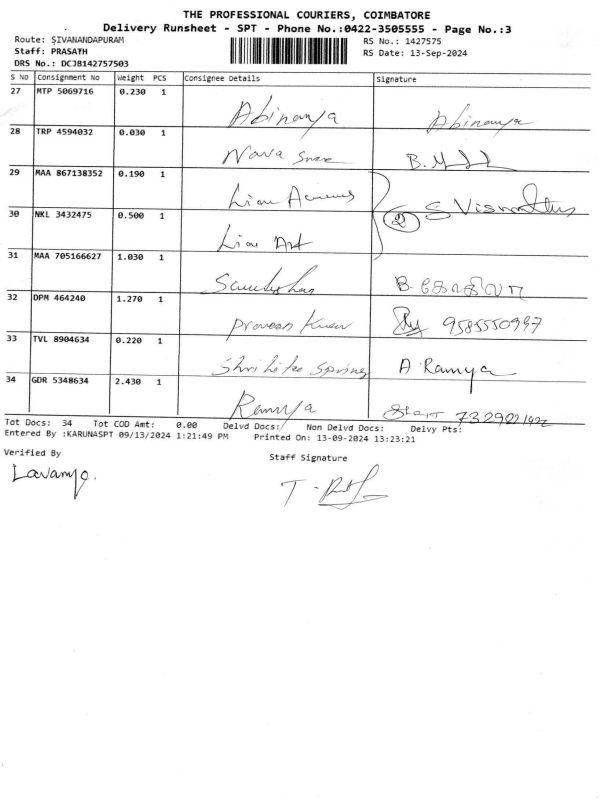 THE PROFESSIONAL COURIERS, COIMBATORE
Delivery Runsheet - SPT - Phone No.:0422-3505555 - Page No.:3
Route: SIVANANDAPURAM RS No.: 1427575
Staff: PRASATH RS Date: 13-Sep-2024
DRS No.: DCJB142757503
S No Consignment No Weight PCS Consignee Details Signature
27 MTP 5069716 0.230 1 Abinanya Abinanya
28 TRP 4594032 0.030 1 Nava
29 MAA 867138352 0.190 1 Lion
2
30 NKL 3432475 0.500 1 Lion Art
31 MAA 705166627 1.030 1 B.
32 DPM 464240 1.270 1 Praveen 9585550997
33 TVL 8904634 0.220 1 Spring A Ramya
34 GDR 5348634 2.430 1 Ramya
Tot Docs: 34 Tot COD Amt: 0.00 Delvd Docs: Non Delvd Docs: Delvy Pts:
Entered By :KARUNASPT 09/13/2024 1:21:49 PM Printed On: 13-09-2024 13:23:21
Verified By Staff Signature
Lavanya.